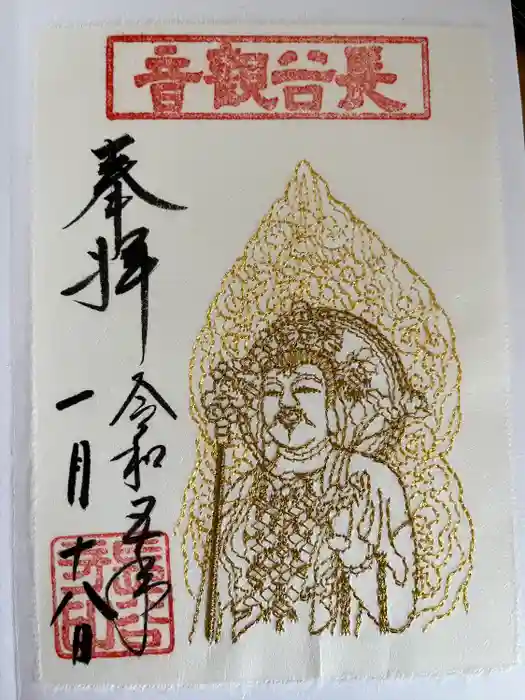 長谷觀音
奉拝
令和五年
一月十八日
長谷
寺印